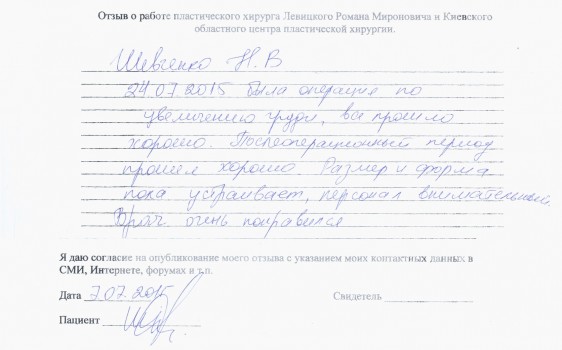 Отзыв о работе пластического хирурга Левицкого Романа Мироновича и Киевского
областного центра пластической хирургии.
Шевченко Н.В
24.07.2015 была операция по
увеличению груди, все прошло
хорошо. Послеоперационный период
прошел хорошо. Размер и форма
пока устраивает, персонал внимательный.
Врач очень понравился
Я даю согласие на опубликование моего отзыва с указанием моих контактных данных в
СМИ, Интернете, форумах и т.п.
Дата 7.07.2015 Свидетель
Пациент